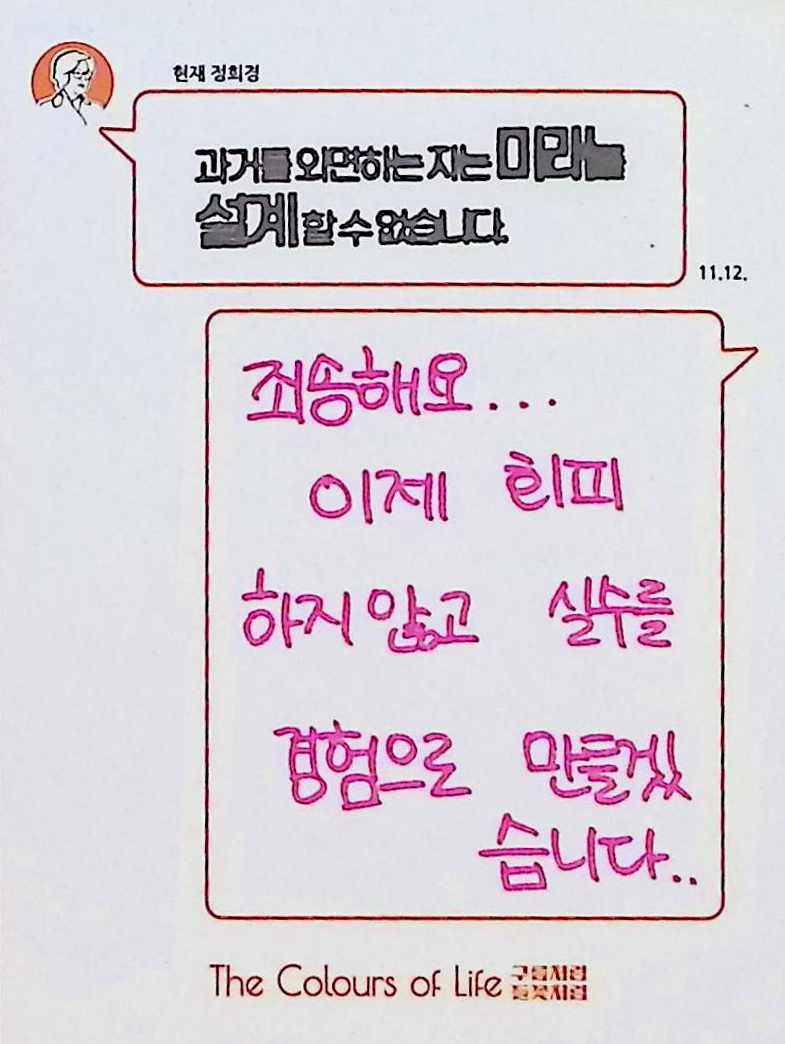 현재 정희경
과거를 외면하는 자는 미래를
설계 할 수 없습니다.
11.12.
죄송해요...
이제 회피
하지 않고 실수를
경험으로 만들겠
습니다..
The Colours of Life 구름처럼
들꽃처럼